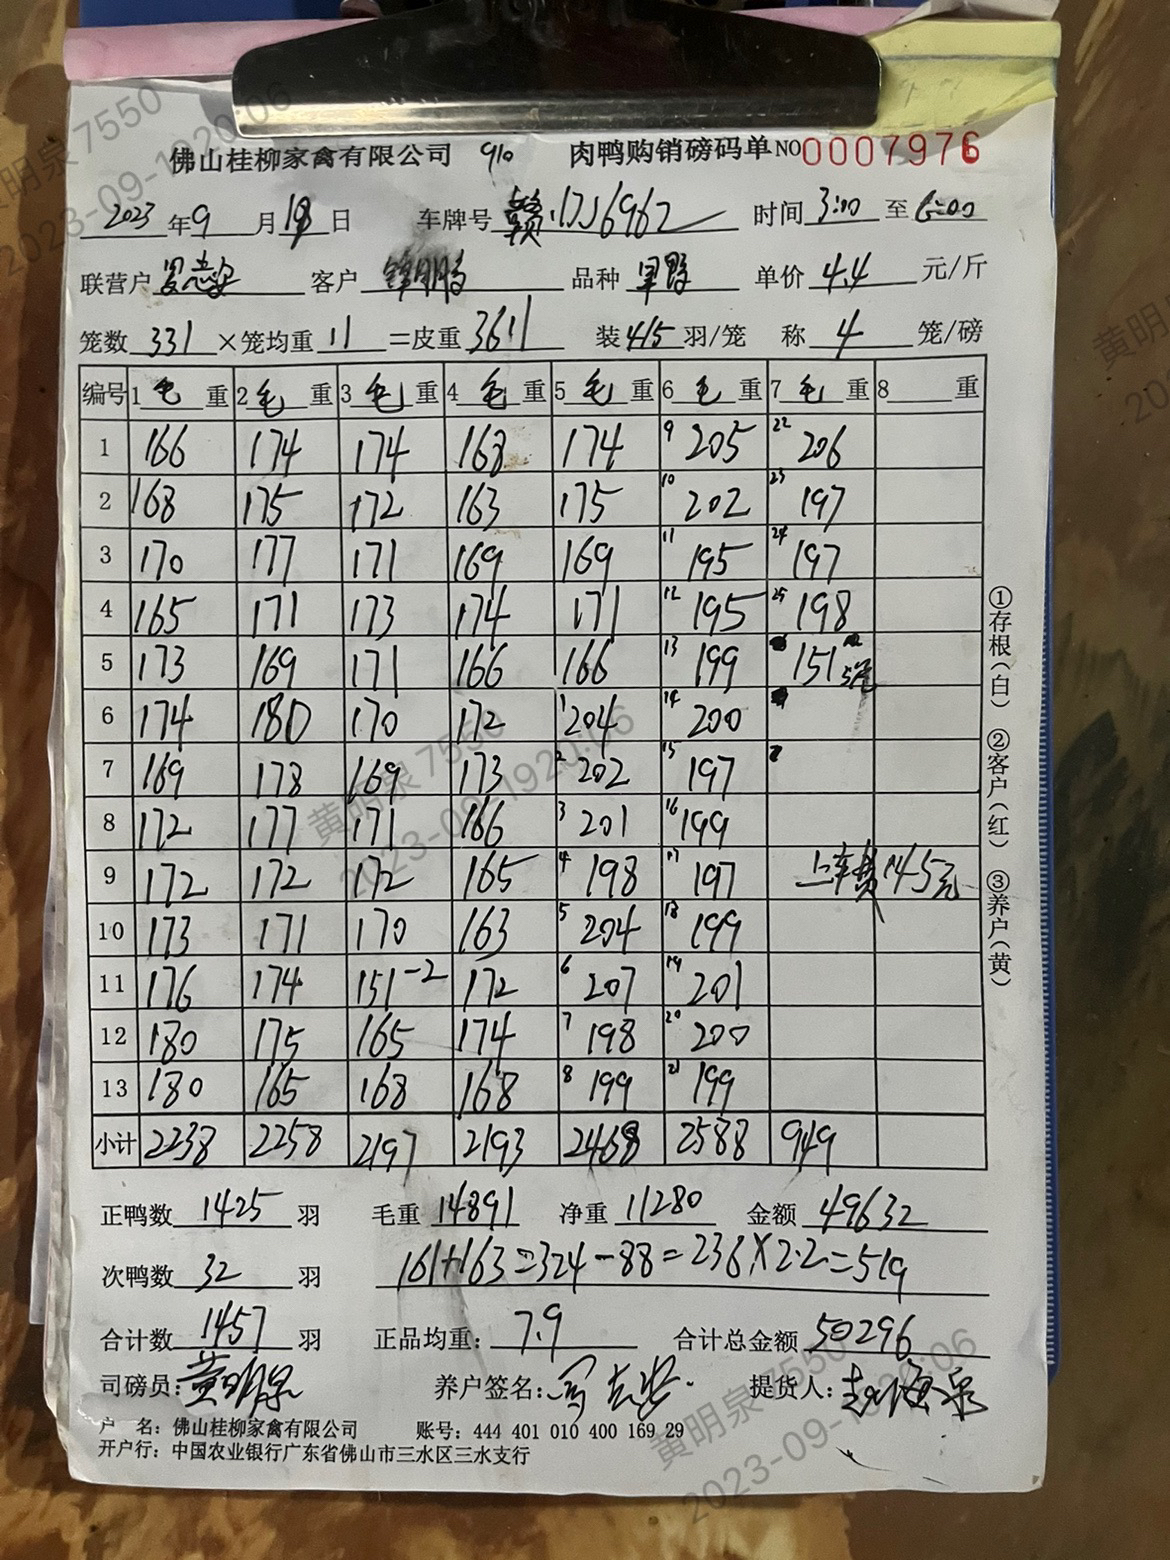 佛山桂柳家禽有限公司 910 肉鸭购销磅码单 NO 0007976
2023 年 9 月 18 日 车牌号 赣 J6962 时间 3:00 至 6:00
联营户 客户 品种 单价 4.4 元/斤
笼数 331 ×笼均重 11 =皮重 3611 装 4/5 羽/笼 称 4 笼/磅
编号 1 毛 重 2 毛 重 3 毛 重 4 毛 重 5 毛 重 6 毛 重 7 毛 重 8 重
1 166 174 174 163 174 9 205 22 206
2 168 175 172 163 175 10 202 23 197
3 170 177 171 169 169 11 195 24 197
4 165 171 173 174 171 12 195 25 198
5 173 169 171 166 166 13 199 151
6 174 180 170 172 1 204 14 200
7 169 178 169 173 2 202 15 197
8 172 177 171 166 3 201 16 199
9 172 172 172 165 4 198 17 197 上车费1145元
10 173 171 170 163 5 204 18 199
11 176 174 151-2 172 6 207 19 201
12 180 175 165 174 7 198 20 200
13 180 165 168 168 8 199 21 199
小计 2238 2258 2197 2193 2468 2588 949
正鸭数 1425 羽 毛重 14891 净重 11280 金额 49632
次鸭数 32 羽 161+163=324-88=236×2.2=519
合计数 1457 羽 正品均重: 7.9 合计总金额 50296
司磅员: 黄明泉 养户签名: 提货人:
户 名: 佛山桂柳家禽有限公司 账号: 444 401 010 400 169 29
开户行: 中国农业银行广东省佛山市三水区三水支行
①存根(白) ②客户(红) ③养户(黄)
黄明泉 7550
2023-09-19 20:06